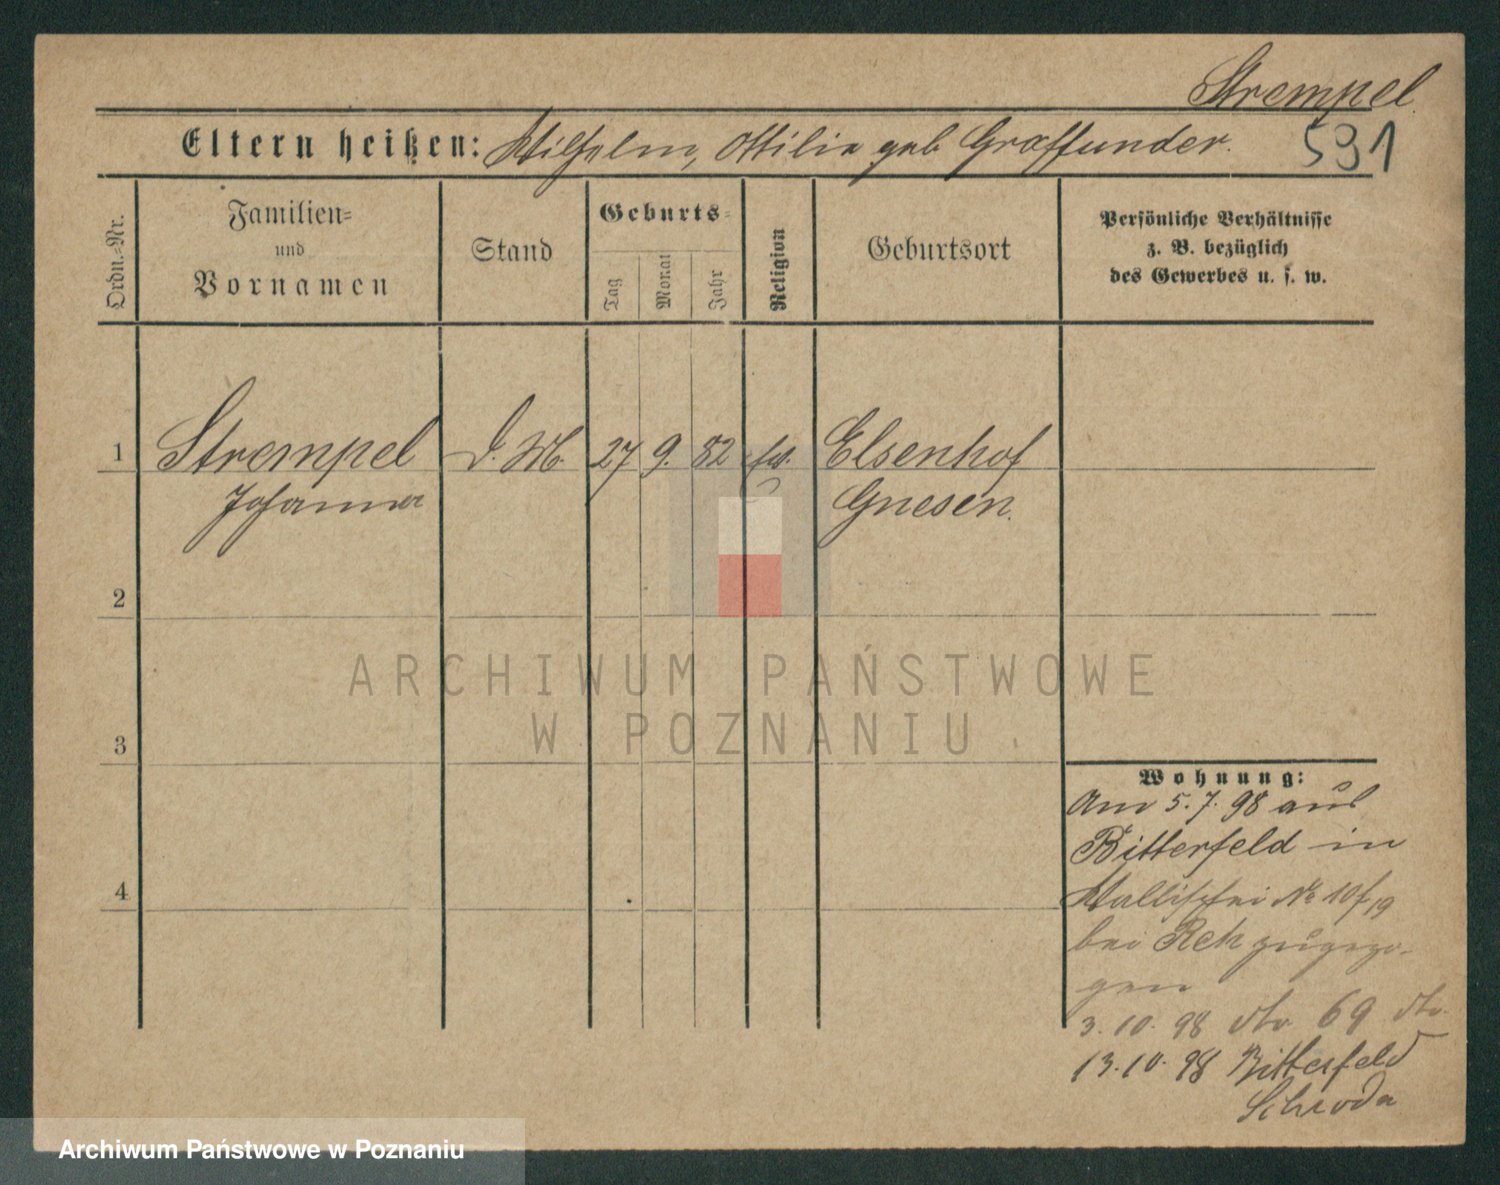 Strempel
Eltern heißen: Wilhelm, Ottilie geb Graffunder.
591
Ordn.-Nr.
Familien-
und
Vornamen
Stand
Geburts-
Tag
Monat
Jahr
Religion
Geburtsort
Persönliche Verhältnisse
z. B. bezüglich
des Gewerbes u. s. w.
1 Strempel D. M. 27 9. 82 ev. Elsenhof
Johanna Gnesen.
2
ARCHIWUM PAŃSTWOWE
W POZNANIU
3
Wohnung:
Am 5.7.98 aus
Bitterfeld in
4
Wallischei No 10/
bei zugezo-
gen
3.10.98 69
13.10.98 Bitterfeld
Schroda
Archiwum Państwowe w Poznaniu